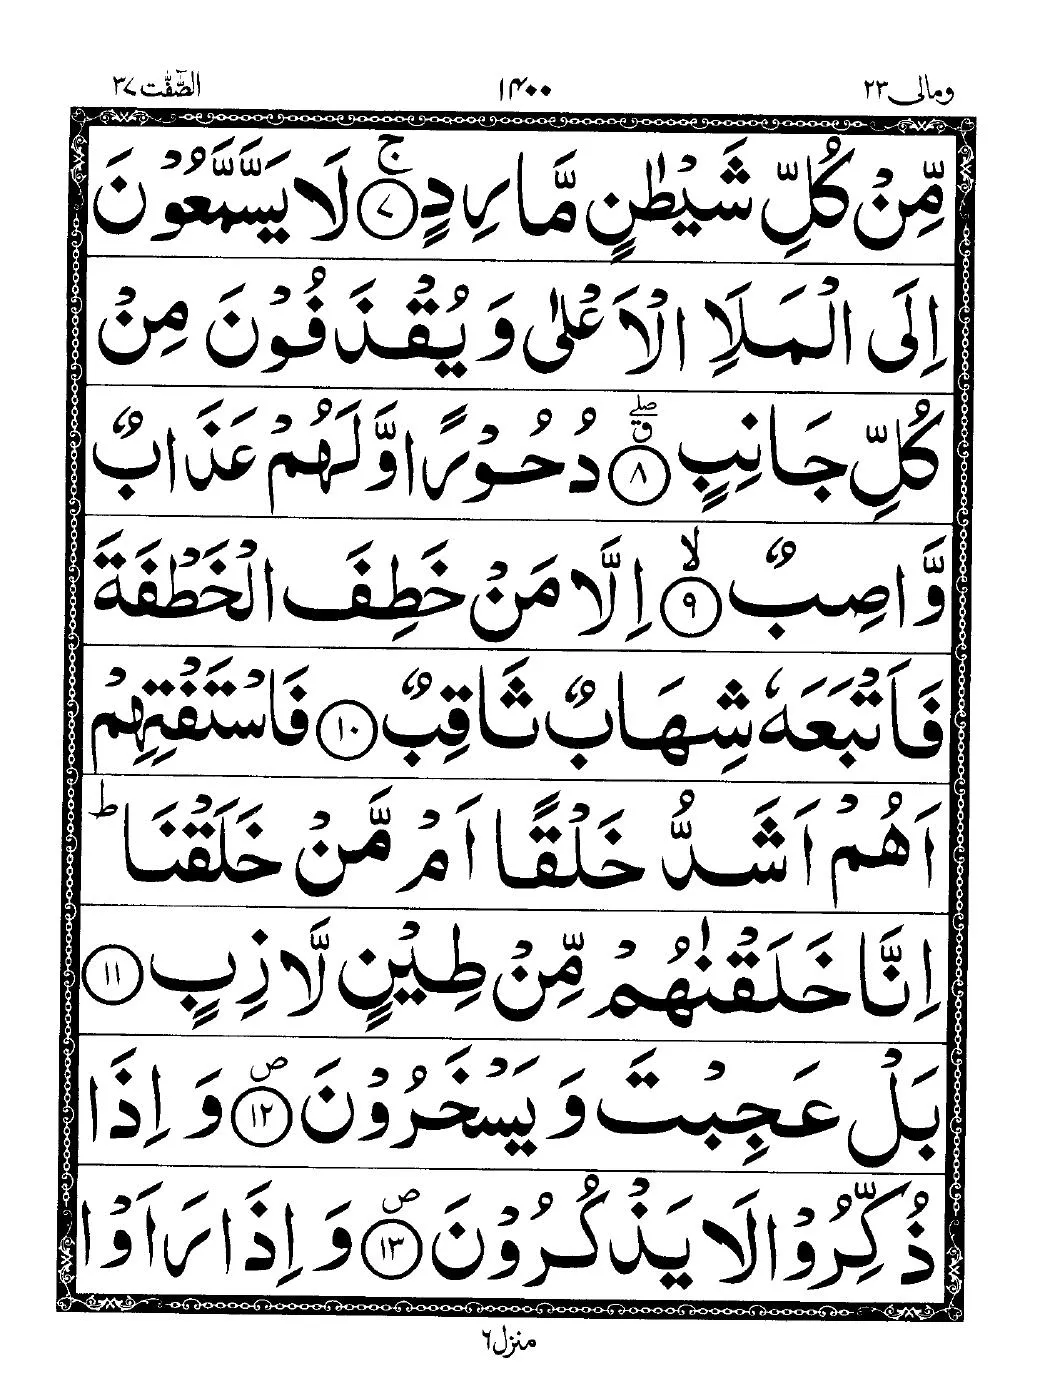 ومالی ٢٣ ١٤٠٠ الصّٰٓفّٰت ٣٧
مِّنْ كُلِّ شَيْطٰنٍ مَّارِدٍ ۚ ﴿٧﴾ لَا يَسَّمَّعُوْنَ
اِلَى الْمَلَاِ الْاَعْلٰى وَيُقْذَفُوْنَ مِنْ
كُلِّ جَانِبٍ ۖق ﴿٨﴾ دُحُوْرًا وَّلَهُمْ عَذَابٌ
وَّاصِبٌ ۙ ﴿٩﴾ اِلَّا مَنْ خَطِفَ الْخَطْفَةَ
فَاَتْبَعَهٗ شِهَابٌ ثَاقِبٌ ﴿١٠﴾ فَاسْتَفْتِهِمْ
اَهُمْ اَشَدُّ خَلْقًا اَمْ مَّنْ خَلَقْنَا ؕ
اِنَّا خَلَقْنٰهُمْ مِّنْ طِيْنٍ لَّازِبٍ ﴿١١﴾
بَلْ عَجِبْتَ وَيَسْخَرُوْنَ ۪ ﴿١٢﴾ وَاِذَا
ذُكِّرُوْا لَا يَذْكُرُوْنَ ۪ ﴿١٣﴾ وَاِذَا رَاَوْا
منزل ٦